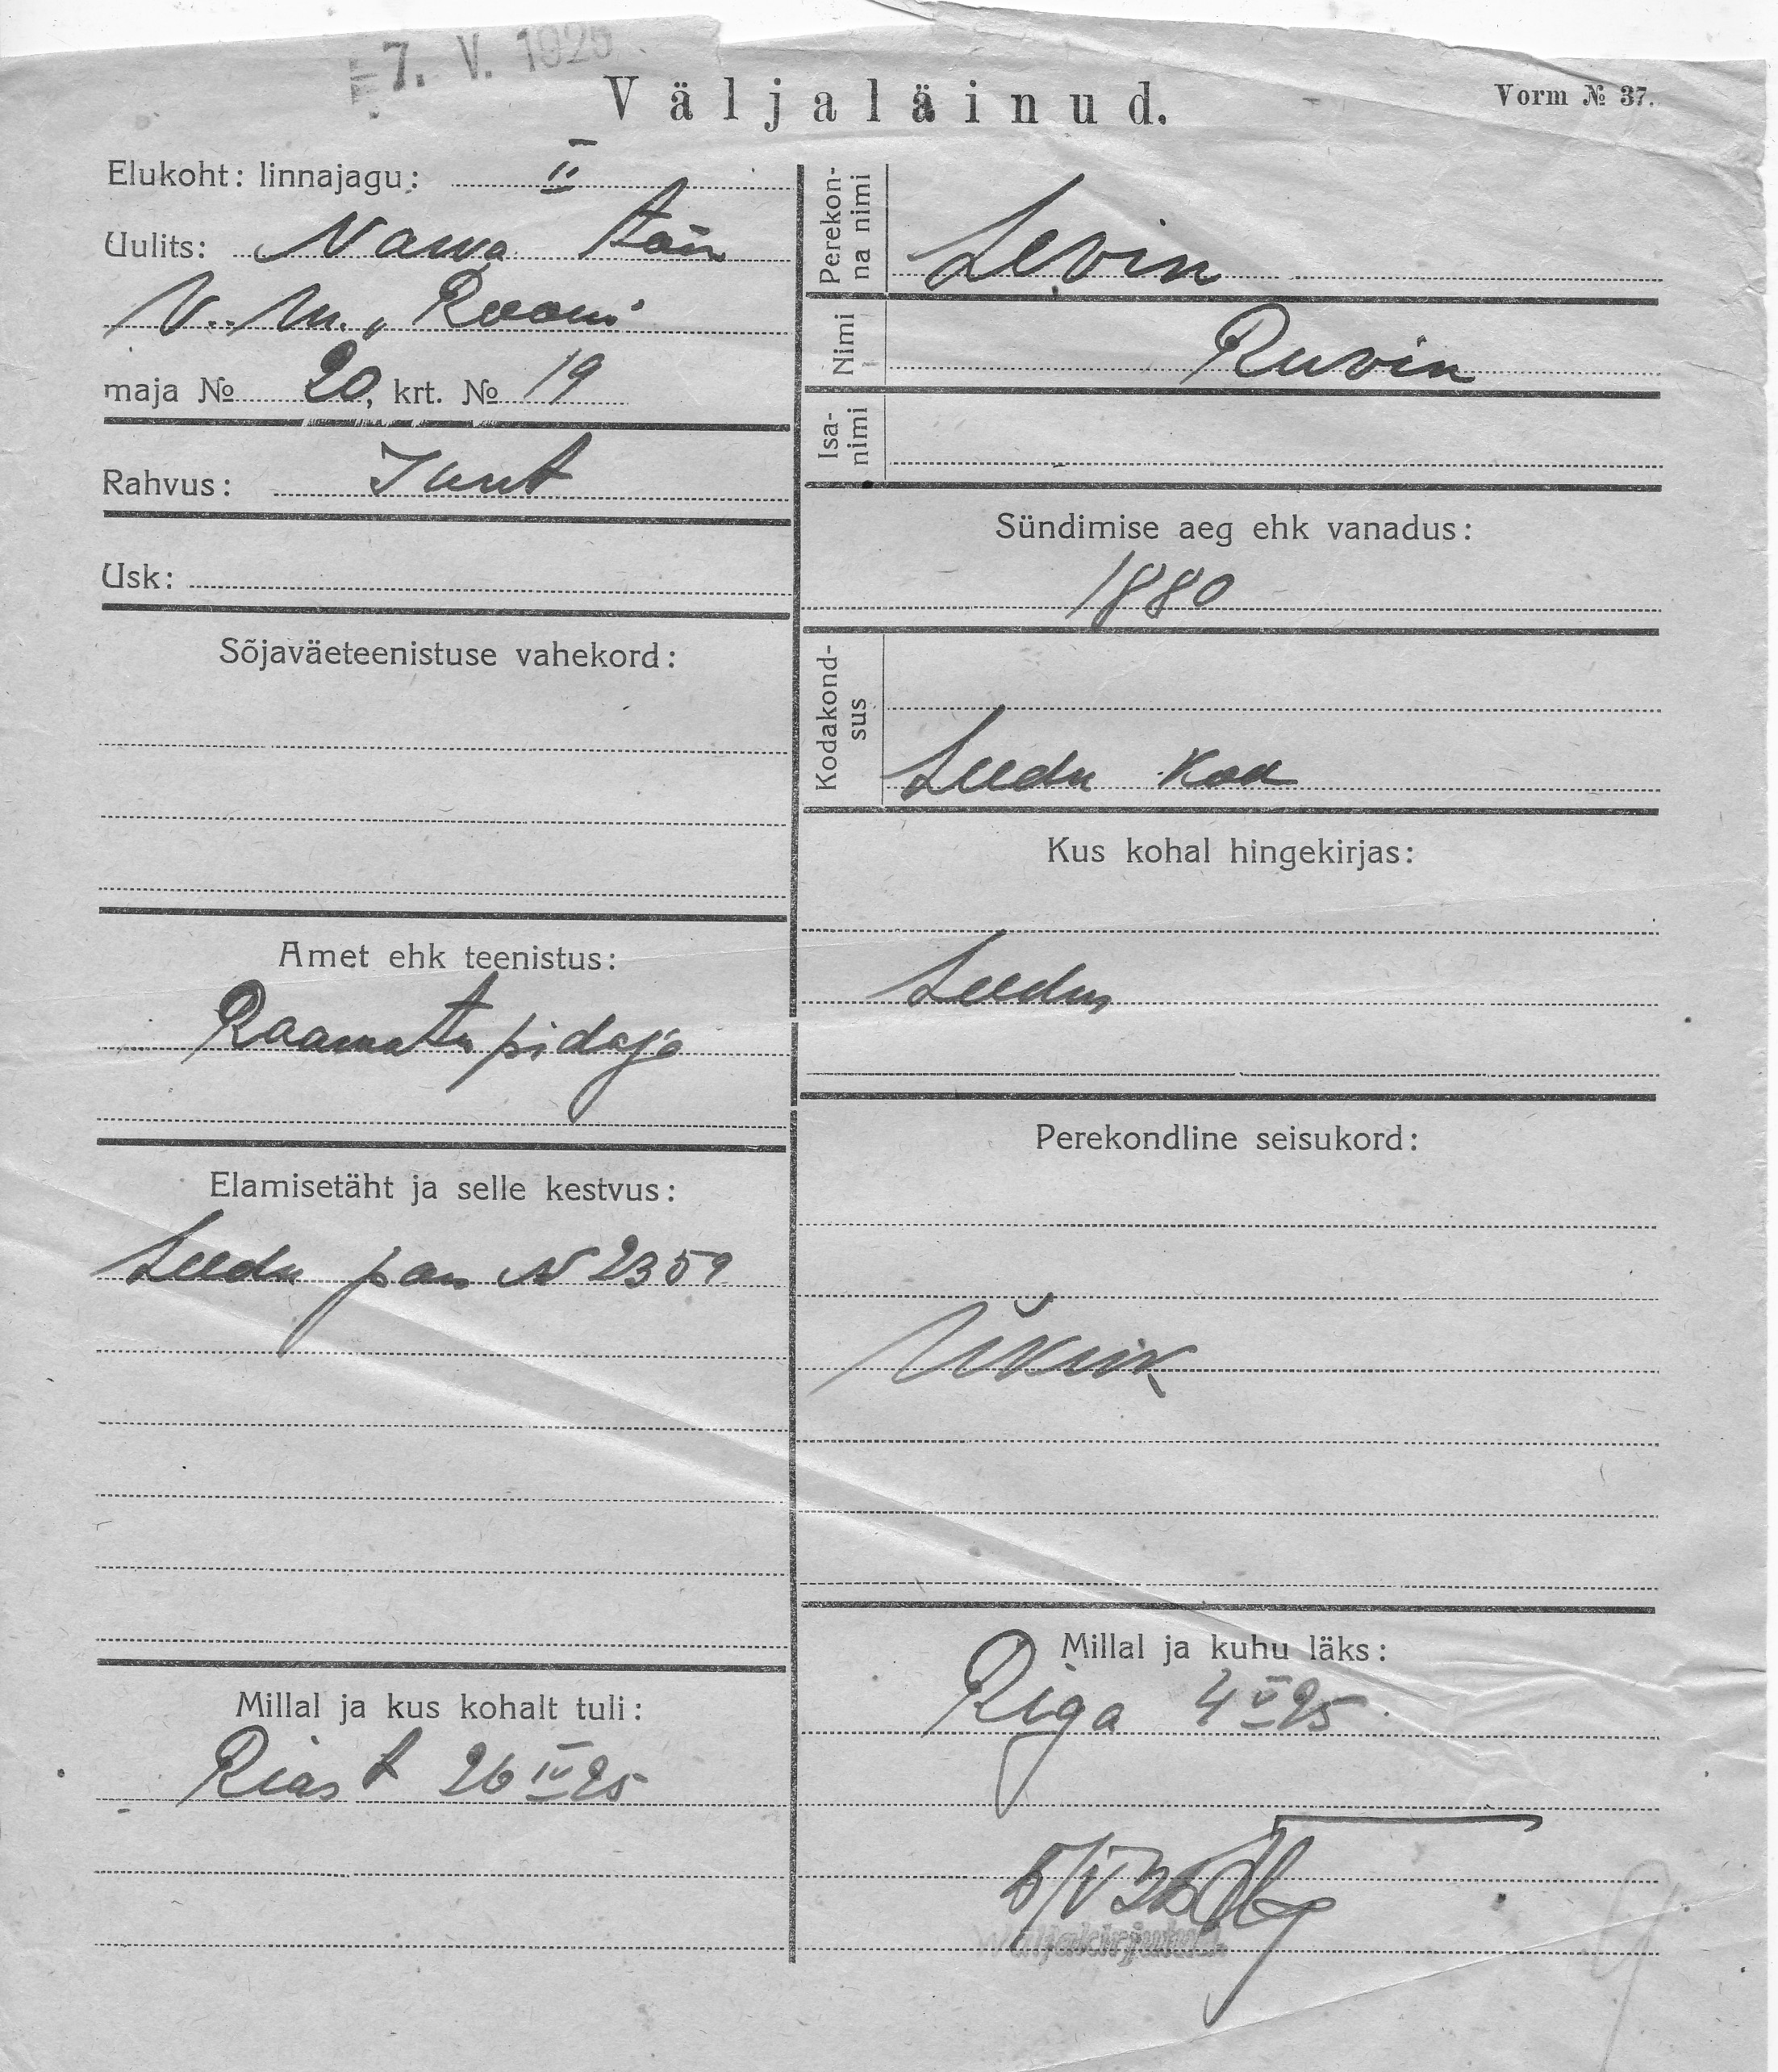 7. V. 1925
Väljaläinud.
Vorm № 37.
Elukoht: linnajagu: II
Uulits: Narva tän
V. M. „Rooma
maja № 20, krt. № 19
Rahvus: Juut
Usk:
Sõjaväeteenistuse vahekord:
Amet ehk teenistus:
Raamatupidaja
Elamisetäht ja selle kestvus:
Leedu pas N 2359
Millal ja kus kohalt tuli:
Riast 26 IV 25
Perekon-
na nimi
Levin
Nimi
Ruvin
Isa-
nimi
Sündimise aeg ehk vanadus:
1880
Kodakond-
sus
Leedu Kod
Kus kohal hingekirjas:
Leedus
Perekondline seisukord:
Üksik
Millal ja kuhu läks:
Riga 4 V 25
5/V 25
Väljakirjutud.